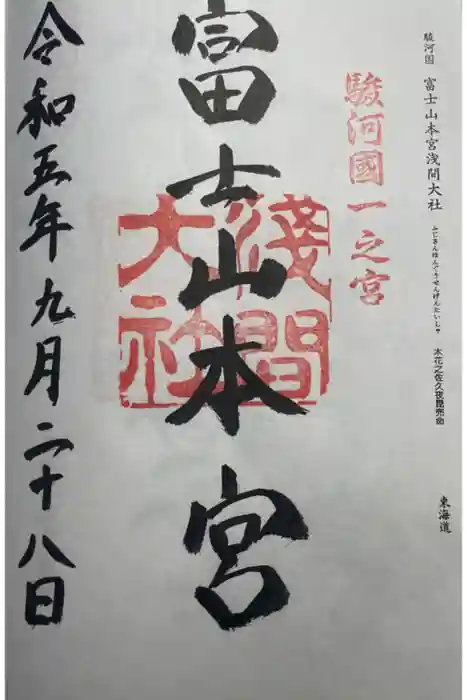 駿河国 富士山本宮浅間大社 ふじさんほんぐうせんげんたいしゃ 木花之佐久夜毘売命 東海道
駿河國一之宮
富士山本宮
淺間
大社
令和五年九月二十八日